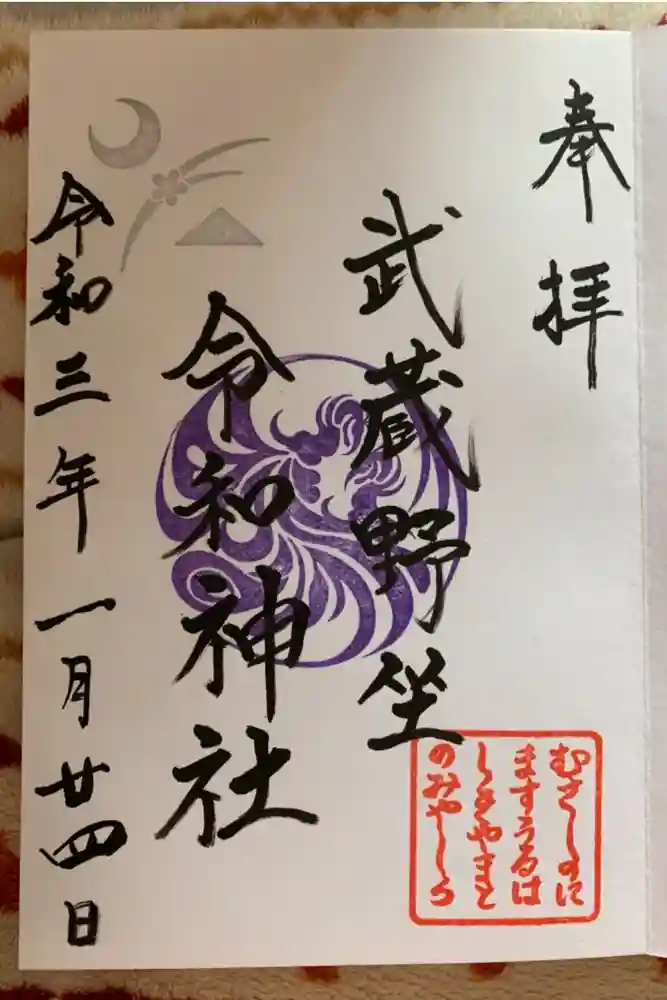 奉拝
武蔵野坐
令和神社
令和三年一月廿四日
むさしのに
ますうるは
しきやまと
のみやしろ